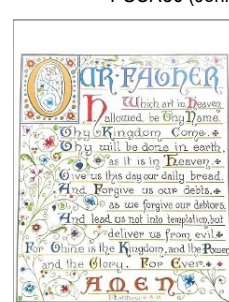 OUR·FATHER
Which art in Heaven
hallowed be Thy Name.
Thy Kingdom Come.
Thy will be done in earth,
as it is in Heaven.
Give us this day our daily bread.
And Forgive us our debts.
as we forgive our debtors.
And lead us not into temptation, but
deliver us from evil
For Thine is the Kingdom, and the Power
and the Glory. For Ever.
AMEN